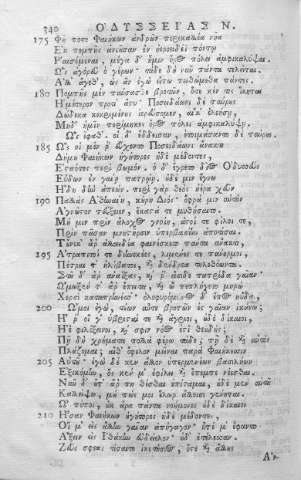 340 ὈΔΥΣΣΕΊΑΣ Ν.
175 Φῆ ποτε Φαιήκων ἀνδρῶν περικαλλέα νῆα
Ἐκ πομπῆς ἀνιοῦσαν ἐν ἠεροειδέϊ πόντῳ
Ῥαισέμεναι, μέγα δ' ἧμιν ὄρος πόλει ἀμφικαλύψαι.
Ὣς ἀγόρευ' ὁ γέρων· τάδε δὴ νῦν πάντα τελεῖται.
Ἀλλ' ἄγεθ', ὡς ἂν ἐγὼ εἴπω πειθώμεθα πάντες.
180 Πομπῆς μὲν παύσασθε βροτῶν, ὅτε κέν τις ἵκηται
Ἡμέτερον προτὶ ἄστυ· Ποσειδάωνι δὲ ταύρους
Δώδεκα κεκριμένους ἱερεύσομεν, αἴ κ' ἐλεήσῃ,
Μηδ' ἡμῖν περίμηκες ὄρος πόλει ἀμφικαλύψῃ.
Ὣς ἔφαθ'· οἱ δ' ἔδδεισαν, ἑτοιμάσσαντο δὲ ταύρους.
185 Ὣς οἱ μέν ῥ' εὔχοντο Ποσειδάωνι ἄνακτι
Δήμου Φαιήκων ἡγήτορες ἠδὲ μέδοντες,
Ἑσταότες περὶ βωμόν, ὁ δ' ἔγρετο δῖος Ὀδυσσεὺς
Εὕδων ἐν γαίῃ πατρωΐῃ, οὐδέ μιν ἔγνω
Ἤδη δὴν ἀπεών, περὶ γὰρ θεὸς ἠέρα χεῦε
190 Παλλὰς Ἀθηναίη, κούρη Διός· ὄφρα μιν αὐτὸν
Ἄγνωστον τεύξειεν, ἕκαστά τε μυθήσαιτο.
Μή μιν πρὶν ἄλοχος γνοίη, ἀστοί τε φίλοι τε,
Πρὶν πᾶσαν μνηστῆρας ὑπερβασίην ἀποτῖσαι.
Τοὔνεκ' ἄρ' ἀλλοειδέα φαινέσκετο πάντα ἄνακτι,
195 Ἀτραπιτοί τε διηνεκέες, λιμένες τε πάνορμοι,
Πέτραι τ' ἠλίβατοι, καὶ δένδρεα τηλεθόωντα.
Στῆ δ' ἄρ' ἀναΐξας, καί ῥ' εἴσιδε πατρίδα γαῖαν·
Ὤιμωξέν τ' ἄρ' ἔπειτα, καὶ ὣ πεπλήγετο μηρὼ
Χερσὶ καταπρηνέσσ', ὀλοφυρόμενος δ' ἔπος ηὔδα,
200 Ὤμοι ἐγώ, τέων αὖτε βροτῶν ἐς γαῖαν ἱκάνω;
Ἤ ῥ' οἵ γ' ὑβρισταί τε καὶ ἄγριοι, οὐδὲ δίκαιοι,
Ἦε φιλόξεινοι, καί σφιν νόος ἐστὶ θεουδής;
Πῆ δὴ χρήματα πολλὰ φέρω τάδε; πῆ δὲ καὶ αὐτὸς
Πλάζομαι; αἴθ' ὄφελον μεῖναι παρὰ Φαιήκεσσιν
205 Αὐτοῦ· ἐγὼ δέ κεν ἄλλον ὑπερμενέων βασιλήων
Ἐξικόμην, ὅς κέν μ' ἐφίλει καὶ ἔπεμπε νέεσθαι.
Νῦν δ' οὔτ' ἄρ πη θέσθαι ἐπίσταμαι, οὐδὲ μὲν αὐτοῦ
Καλλείψω, μή πώς μοι ἕλωρ ἄλλοισι γένηται.
Ὢ πόποι, οὐκ ἄρα πάντα νοήμονες οὐδὲ δίκαιοι
210 Ἦσαν Φαιήκων ἡγήτορες ἠδὲ μέδοντες·
Οἵ μ' εἰς ἄλλην γαῖαν ἀπήγαγον· ἦ τέ μ' ἔφαντο
Ἄξειν εἰς Ἰθάκην εὐδείελον· οὐδ' ἐτέλεσσαν.
Ζεὺς σφέας τίσαιτο ἱκετήσιος, ὅς τε καὶ ἄλλους
Ἀν-